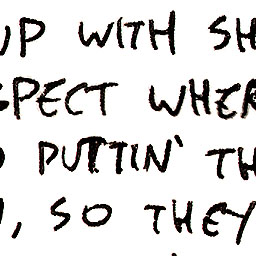 UP WITH SH
SPECT WHER
PUTTIN' TH
, SO THEY